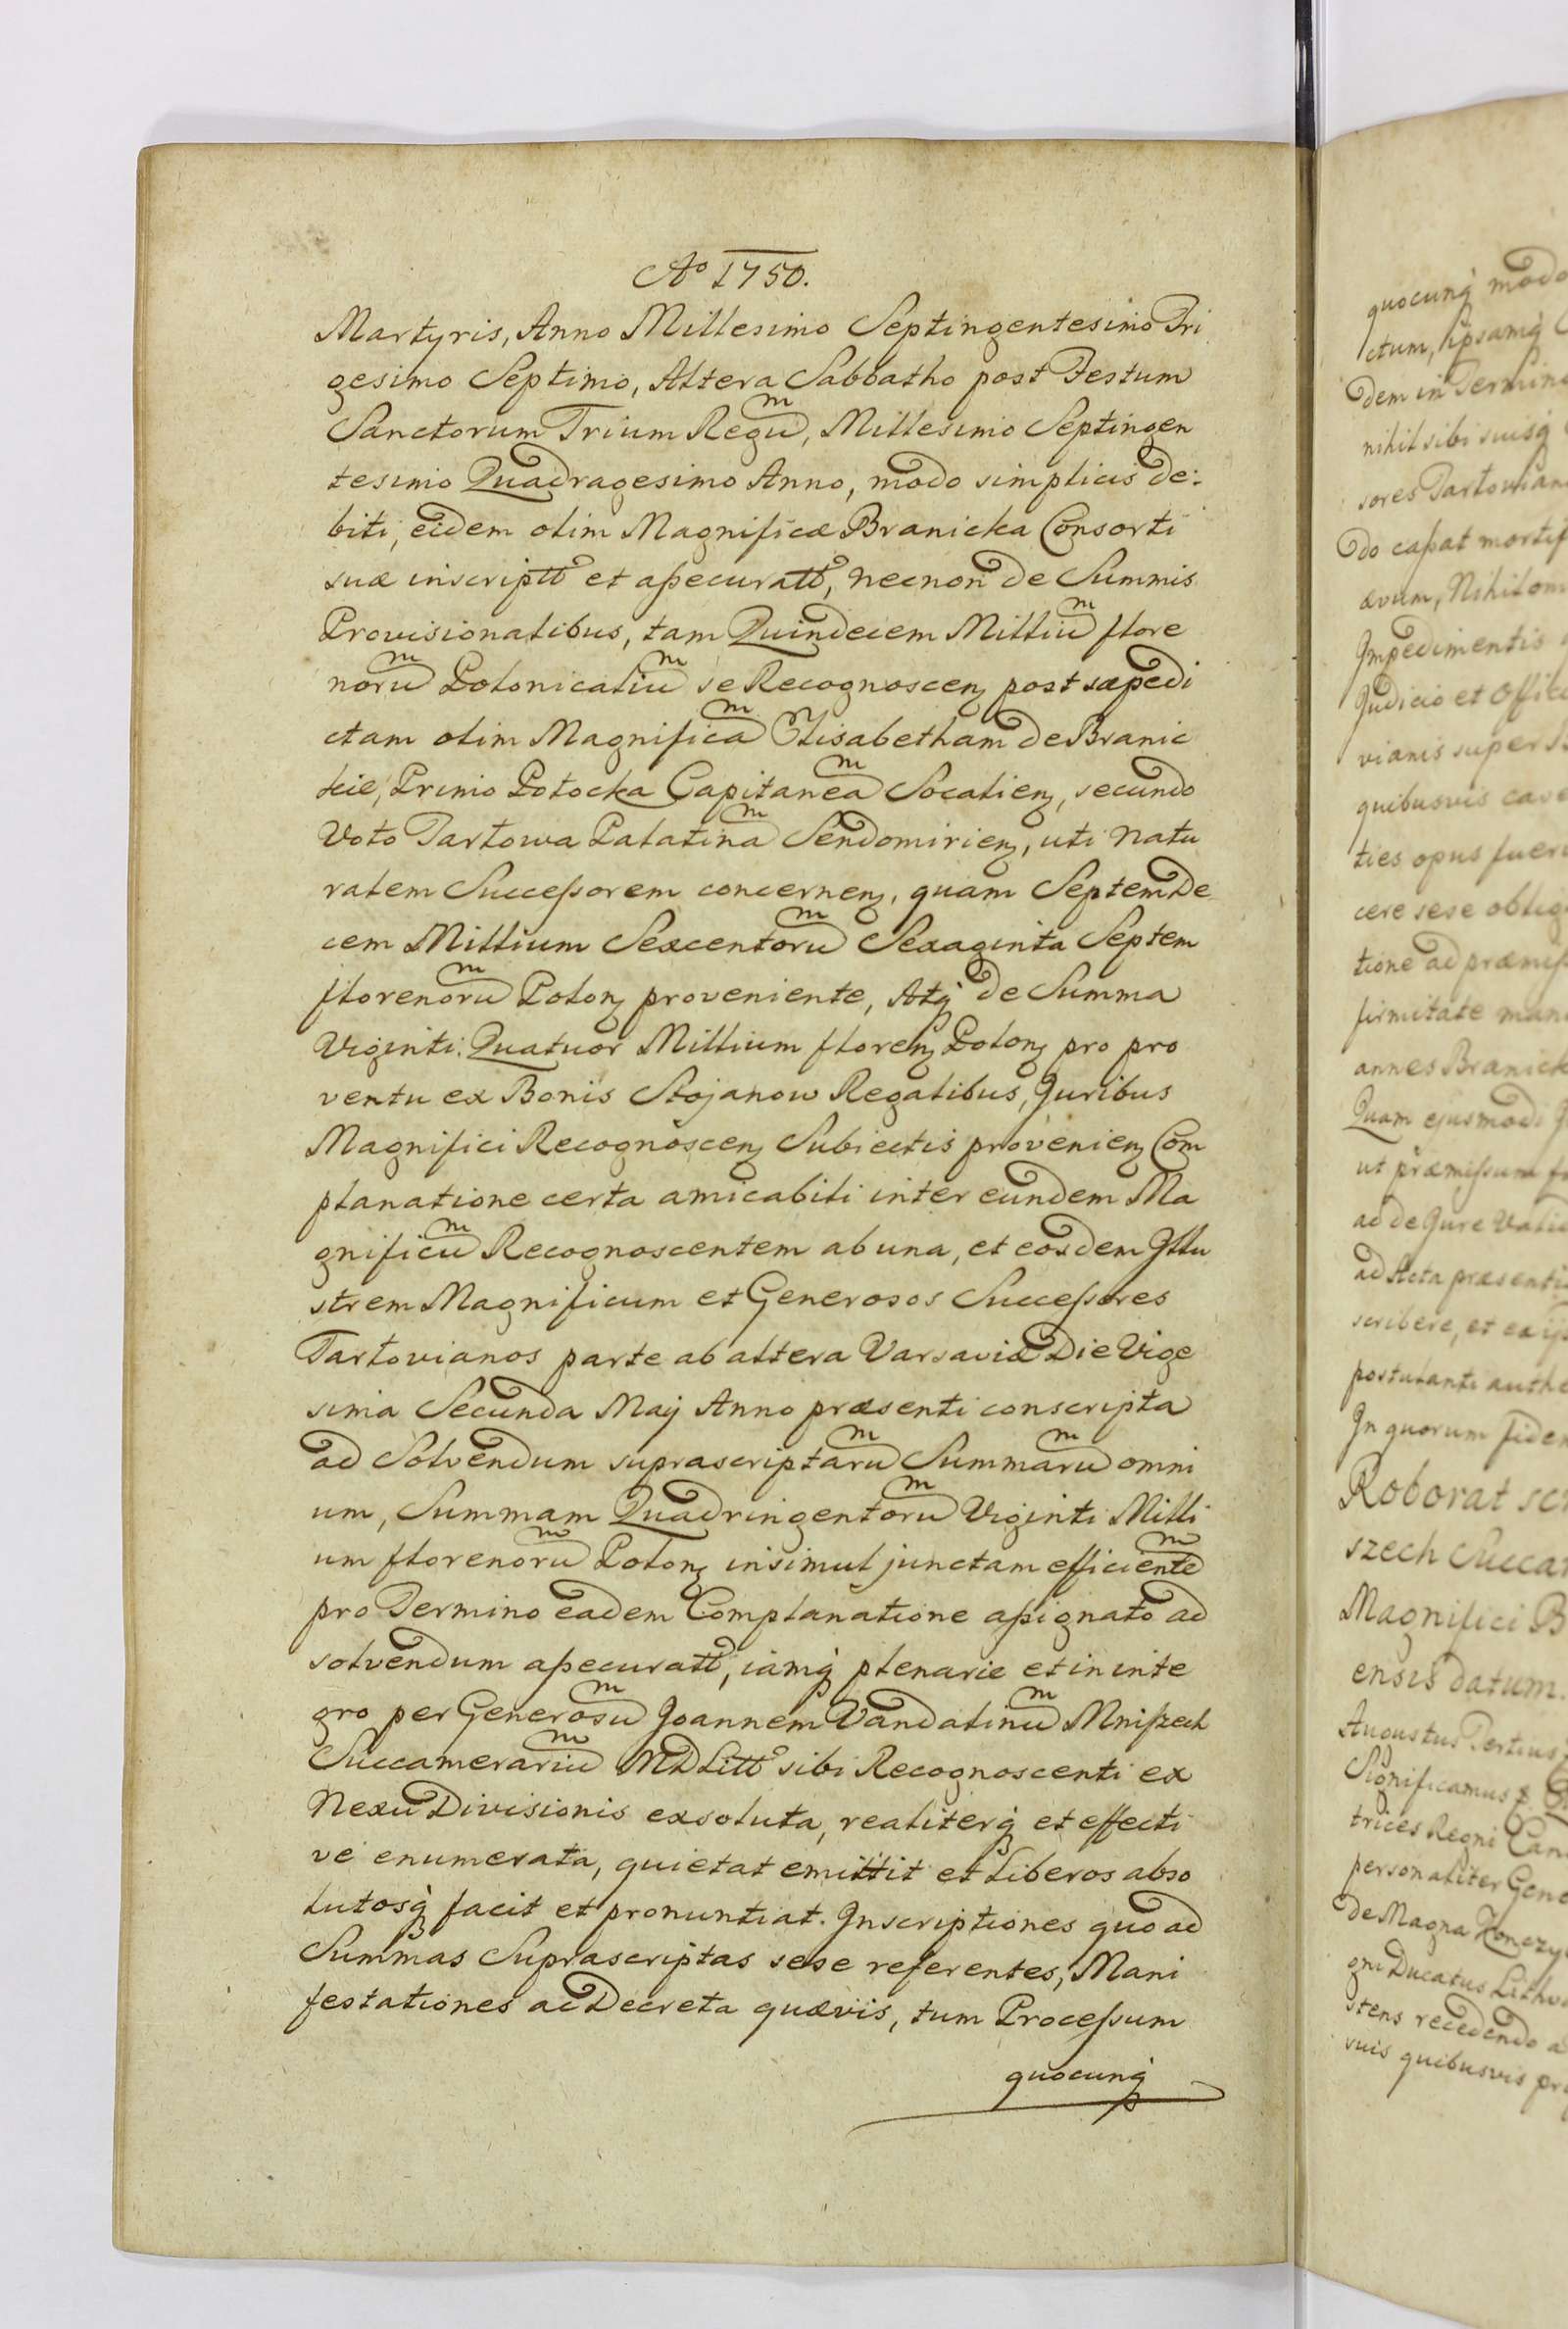 Aº 1750.
Martyris, Anno Millesimo Septingentesimo Tri
gesimo Septimo, Altera Sabbatho post Festum
Sanctorum Trium Regum, Millesimo Septingen
tesimo Quadragesimo Anno, modo simplicis de:
biti, eidem olim Magnificæ Branicka Consorti
suæ inscriptt et assecuratt, necnon de Summis
Provisionalibus, tam Quindecem Millium flore
norum Polonicalium se Recognoscen post sæpedi
ctam olim Magnificam Elisabetham de Branic
kie, Primo Potocka Capitaneam Socalien, secundo
Voto Tartowa Palatinam Sendomirien, uti natu
ralem Successorem concernen, quam Septemde
cem Millium Sexcentorum Sexaginta Septem
florenorum Polon proveniente, Atq de Summa
Viginti Quatuor Millium floren Polon pro pro
ventu ex Bonis Stojanow Regalibus, Juribus
Magnifici Recognoscen Subiectis provenien Com
planatione certa amicabili inter eundem Ma
gnificum Recognoscentem ab una, et eosdem Illu
strem Magnificum et Generosos Successores
Tartovianos parte ab altera Varsaviæ Die Vige
sima Secunda Maij Anno præsenti conscripta
ad Solvendum suprascriptarum Summarum omni
um, Summam Quadringentorum Viginti Milli
um florenorum Polon insimul junctam efficientem
pro Termino eadem Complanatione assignato ad
solvendum assecuratt, iamq plenarie et in inte
gro per Generosum Joannem Vandalinum Mniszech
Succamerarium MDLitt sibi Recognoscenti ex
Nexu Divisionis exsoluta, realiterq et effecti
ve enumerata, quietat emittit et Liberos abso
lutosq facit et pronuntiat. Inscriptiones quo ad
Summas Suprascriptas sese referentes, Mani
festationes ac Decreta quævis, tum Processum
quocunq
quocunq modo
ctum, ipsamq
dem in Termino
nihil sibi suisq
sores Tartovian
do cassat mortif
ævum, Nihilom
Impedimentis
Judicio et Offic
vianis super
quibusvis case
ties opus fuer
cere sese oblig
tione ad præmiss
firmitate man
annes Branick
Quam ejusmodi
ut præmissum
ad de Jure Vali
ad Acta præsenti
scribere, et ex
postulanti authe
In quorum fidem
Roborat scr
szech Succam
Magnifici B
ensis datum.
Augustus Tertius
Significamus
trices Regni Can
personaliter Gene
de Magna Konczy
gni Ducatus Lithu
stens recedendo a
suis quibusvis pr